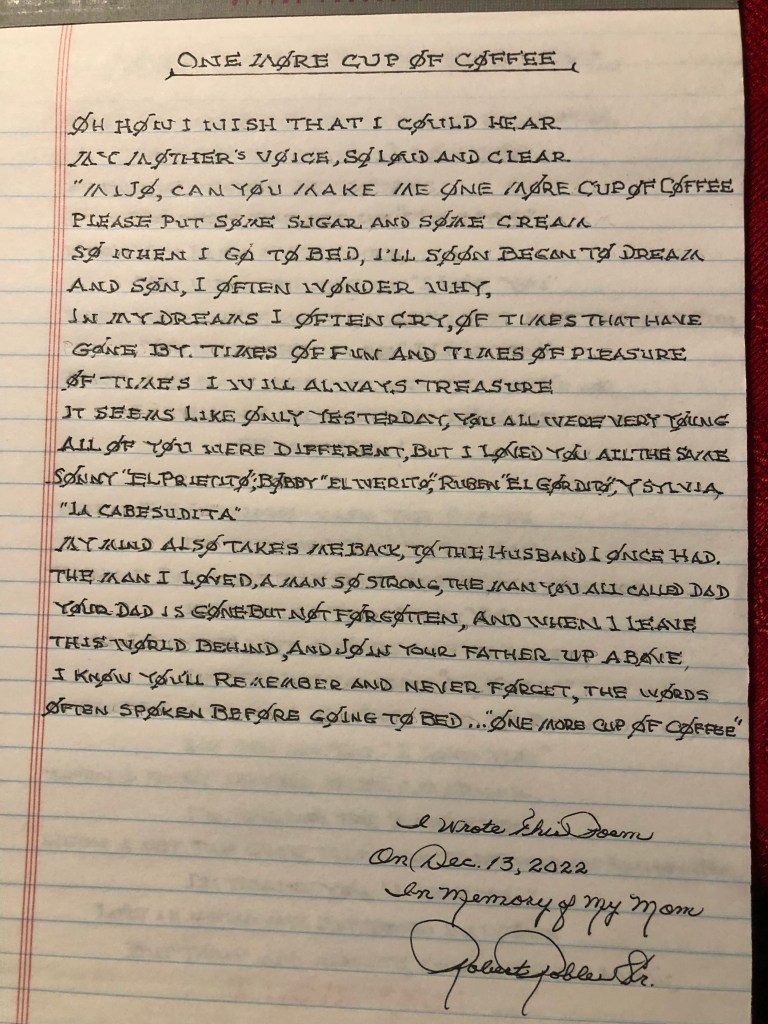 ONE MORE CUP OF COFFEE
OH HOW I WISH THAT I COULD HEAR
MY MOTHER'S VOICE, SO LOUD AND CLEAR.
"MIJO, CAN YOU MAKE ME ONE MORE CUP OF COFFEE
PLEASE PUT SOME SUGAR AND SOME CREAM
SO WHEN I GO TO BED, I'LL SOON BEGAN TO DREAM
AND SON, I OFTEN WONDER WHY,
IN MY DREAMS I OFTEN CRY, OF TIMES THAT HAVE
GONE BY. TIMES OF FUN AND TIMES OF PLEASURE
OF TIMES I WILL ALWAYS TREASURE
IT SEEMS LIKE ONLY YESTERDAY, YOU ALL WERE VERY YOUNG
ALL OF YOU WERE DIFFERENT, BUT I LOVED YOU ALL THE SAME
SONNY "EL PRIETITO", BOBBY "EL WERITO", RUBEN "EL GORDITO", Y SYLVIA,
"LA CABESUDITA"
MY MIND ALSO TAKES ME BACK, TO THE HUSBAND I ONCE HAD.
THE MAN I LOVED, A MAN SO STRONG, THE MAN YOU ALL CALLED DAD
YOUR DAD IS GONE BUT NOT FORGOTTEN, AND WHEN I LEAVE
THIS WORLD BEHIND, AND JOIN YOUR FATHER UP ABOVE,
I KNOW YOU'LL REMEMBER AND NEVER FORGET, THE WORDS
OFTEN SPOKEN BEFORE GOING TO BED... "ONE MORE CUP OF COFFEE"
I Wrote This Poem
On Dec. 13, 2022
In Memory of My Mom
Robert Robles Sr.